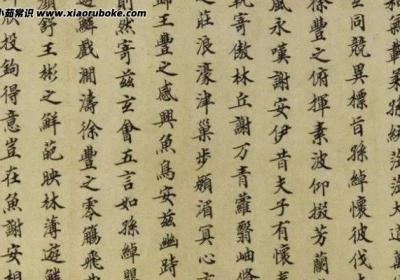 小茹常识 www.xiaoruboke.com
孫統茫茫大造萬
同競異標旨孫綽懷彼伐木
徐豐之俯揮素波仰掇芳蘭
風永嘆謝安伊昔夫子有懷
軌寄傲林丘謝万青蘿翳岫脩
之莊浪濠津巢步潁湄冥心
歸王豐之感興魚鳥安茲幽峙
則然寄茲玄會五言如孫綽
遊鱗戲瀾濤徐豐之零觴飛曲
舒王彬之鮮葩映林薄遊鱗
欣投鉤得意豈在魚謝安相